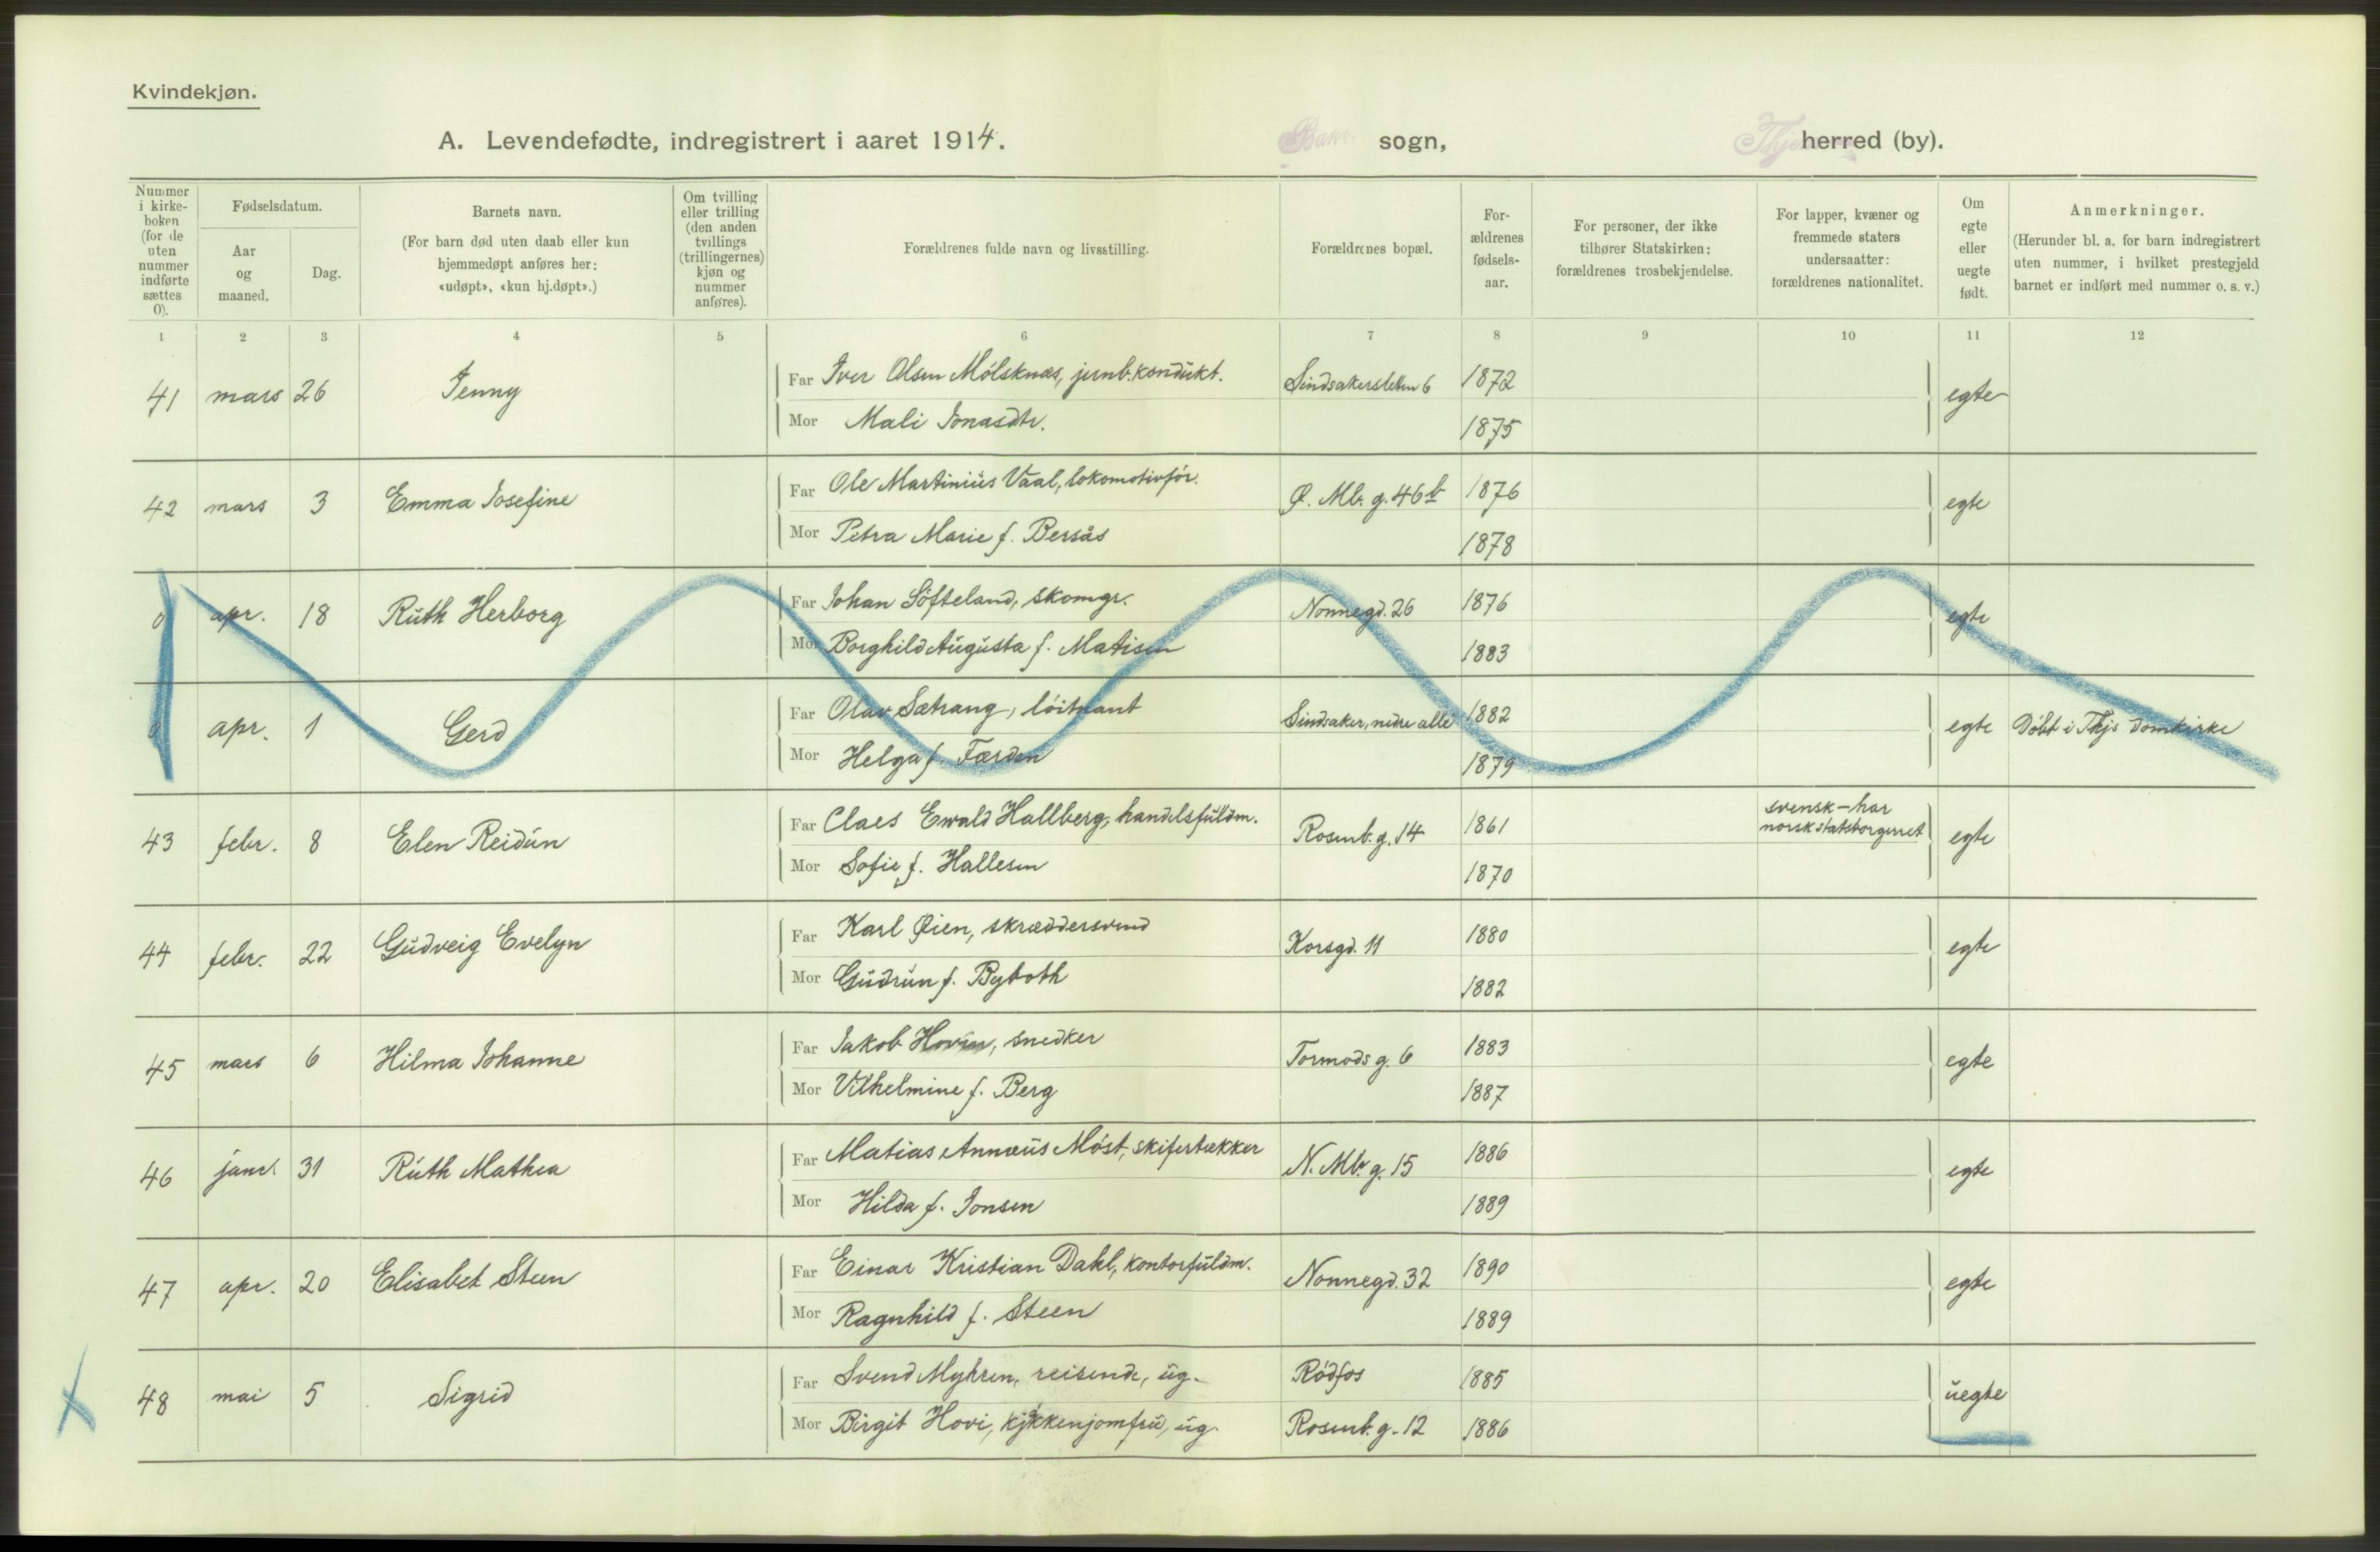 Kvindekjøn.
A. Levendefødte, indregistrert i aaret 1914. Bakr. sogn, Thj herred (by).
Nummer i kirke-boken (for de uten nummer indførte sættes 0).
Fødselsdatum.
Aar og maaned.
Dag.
Barnets navn.
(For barn død uten daab eller kun hjemmedøpt anføres her: «udøpt», «kun hj.døpt».)
Om tvilling eller trilling (den anden tvillings (trillingernes) kjøn og nummer anføres).
Forældrenes fulde navn og livsstilling.
Forældrenes bopæl.
For-ældrenes fødsels-aar.
For personer, der ikke tilhører Statskirken: forældrenes trosbekjendelse.
For lapper, kvæner og fremmede staters undersaatter: forældrenes nationalitet.
Om egte eller uegte født.
Anmerkninger.
(Herunder bl. a. for barn indregistrert uten nummer, i hvilket prestegjeld barnet er indført med nummer o. s. v.)
1 2 3 4 5 6 7 8 9 10 11 12
41 mars 26 Jenny Far Iver Olsen Mólsknæs, jernb.kondukt. Sindsakersletten 6 1872 egte
Mor Mali Jonasdtr. 1875
42 mars 3 Emma Josefine Far Ole Martinius Vaal, lokomotivfór. Ø. Mb. g. 46 b 1876 egte
Mor Petra Marie f. Bersås 1878
0 apr. 18 Ruth Herborg Far Johan Sófteland, skomgr. Nonnegd. 26 1876 egte
Mor Borghild Augusta f. Matisen 1883
0 apr. 1 Gerd Far Olav Sætrang, lóitnant Sindsaker, nedre allé 1882 egte Dóbt i Thjs domkirke
Mor Helga f. Færden 1879
43 febr. 8 Elen Reidun Far Claes Ewald Hallberg, handelsfuldm. Rosenb. g. 14 1861 svensk-har norsk statsborgerret egte
Mor Sofie f. Hallesen 1870
44 febr. 22 Gudveig Evelyn Far Karl Øien, skræddersvend Korsgd. 11 1880 egte
Mor Gudrun f. Byboth 1882
45 mars 6 Hilma Johanne Far Jakob Hovin, snedker Tormods g. 6 1883 egte
Mor Vilhelmine f. Berg 1887
46 janr. 31 Ruth Mathea Far Matias Annæus Móst, skifertækker N. Mb. g. 15 1886 egte
Mor Hilda f. Jonsen 1889
47 apr. 20 Elisabet Steen Far Einar Kristian Dahl, kontorfuldm. Nonnegd. 32 1890 egte
Mor Ragnhild f. Steen 1889
48 mai 5 Sigrid Far Svend Myhren, reisende, ug. Ródfos 1885 uegte
Mor Birgit Hovi, kjókkenjomfru, ug. Rosenb. g. 12 1886